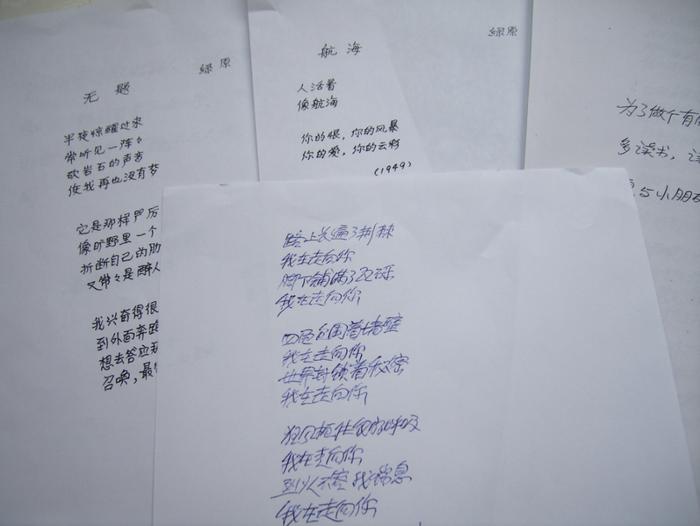 无题
绿原
半夜惊醒过来
常听见一阵々
砍岩石的声音
使我再也没有梦
它是那样严厉
像旷野里一个
折断自己的肋
又常々是醉人
我兴奋得很
到外面奔跑
想去答应那
召唤，最
航海
绿原
人活着
像航海
你的恨，你的风暴
你的爱，你的云彩
(1949)
为了做个有
多读书，
与小朋友
路上长遍了荆棘
我在走向你
脚下铺满了
我在走向你
四面包围着墙壁
我在走向你
世界封锁着秘密
我在走向你
狂风扼住我的呼吸
我在走向你
我喘息
我在走向你